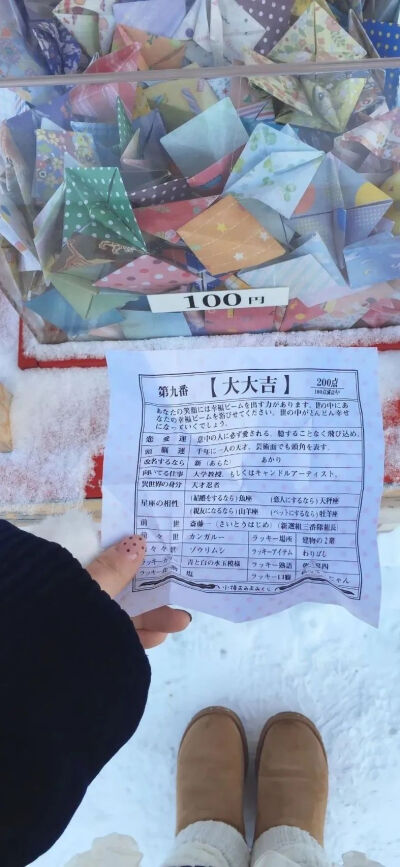 100円
第九番 【大大吉】 200点
100点満点中
あなたの笑顔には幸福ビームを出す力があります。世の中にあ
なたの幸福ビームを浴びせてください。世の中がどんどん幸せ
になっていくでしょう。
恋愛運 意中の人に必ず愛される。臆することなく飛び込め。
頭脳運 千年に一人の天才。芸術面でも頭角を表す。
改名するなら 新(あらた) あかり
向いてる仕事 大学教授、もしくはキャンドルアーティスト。
異世界の身分 天才忍者
星座の相性 (結婚をするなら)魚座 (恋人にするなら)天秤座
(親友になるなら)山羊座 (ペットにするなら)牡羊座
前世 斎藤一(さいとうはじめ)(新選組三番隊組長)
々世 カンガルー ラッキー場所 建物の2階
々々世 ゾウリムシ ラッキーアイテム わりばし
ラッキーカ 青と白の水玉模様 ラッキー熟語
ラッキー 塩 ラッキー口癖 にゃん